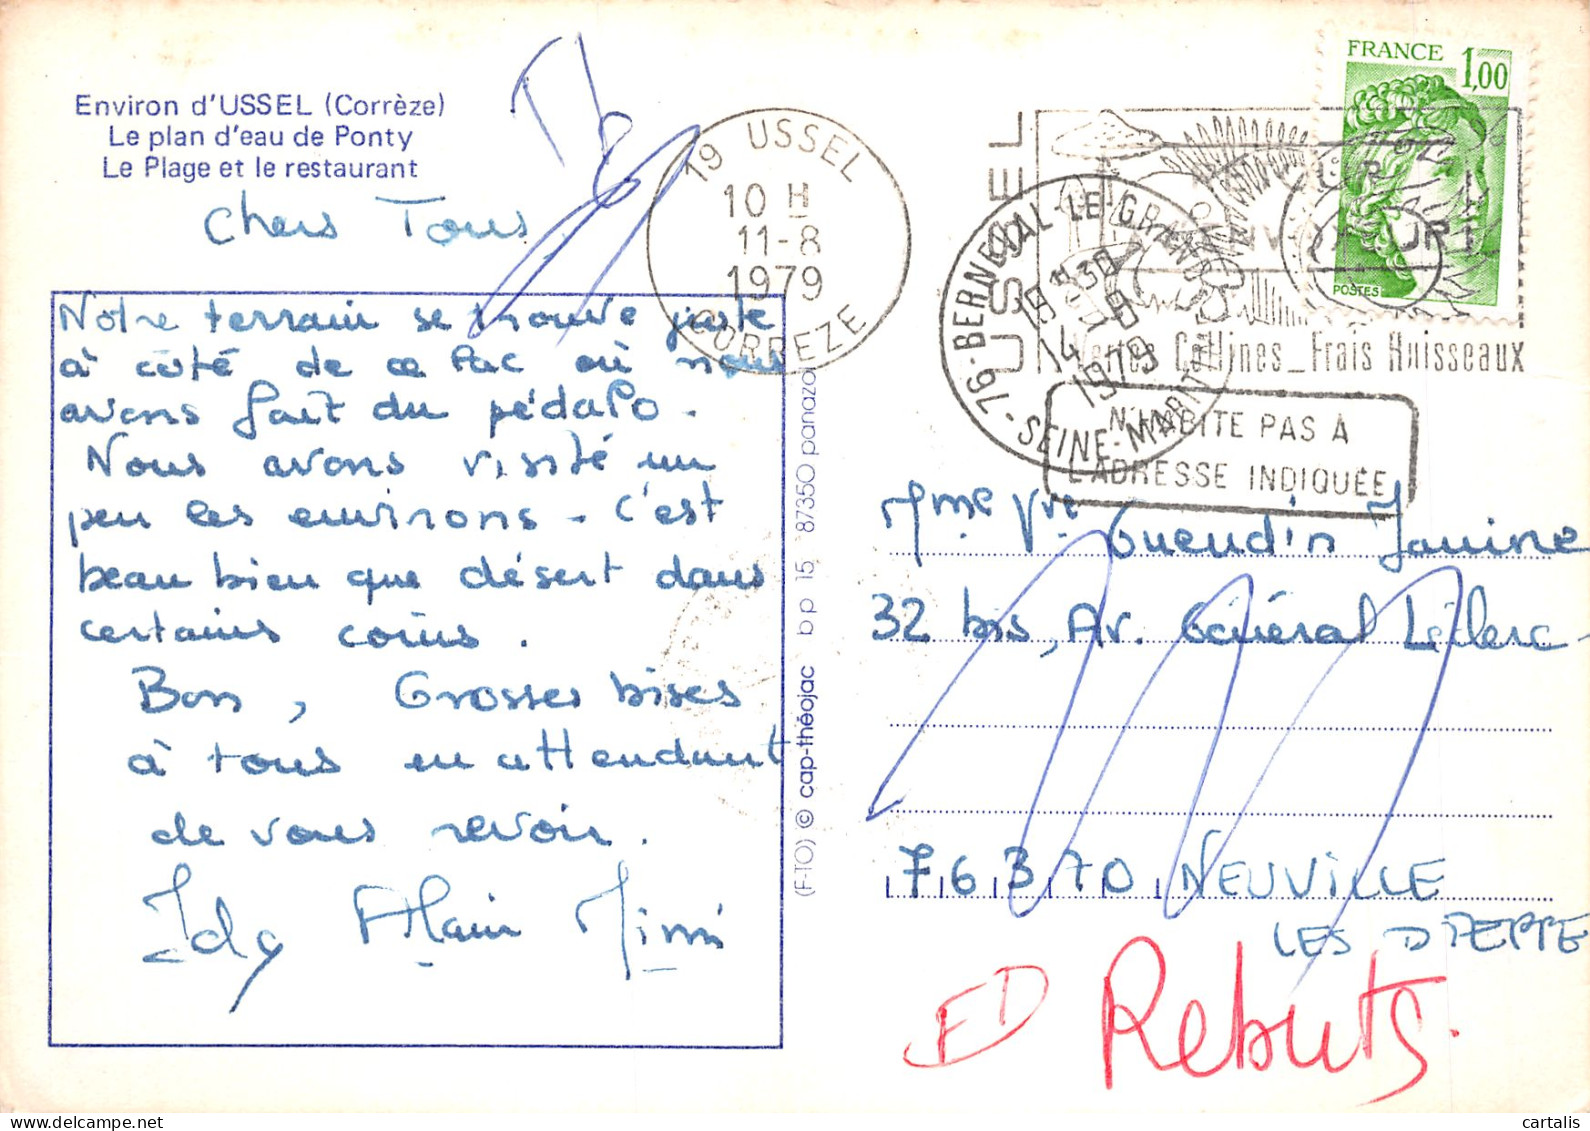 Environ d'USSEL (Corrèze)
Le plan d'eau de Ponty
Le Plage et le restaurant
Chers Tous
Notre terrain se trouve juste
à côté de ce lac où nous
avons fait du pédalo.
Nous avons visité un
peu les environs - c'est
beau bien que désert dans
certains coins.
Bon, Grosses bises
à tous en attendant
de vous revoir.
Idg Alain Mimi
19 USSEL
10 H
11-8
1979
CORREZE
(F-TO) © cap-théojac bp 15 87350 panazol
FRANCE 1,00
POSTES
USSEL
Vertes Collines_Frais Ruisseaux
76-BERNEVAL-LE-GRAND
14-9
1979
SEINE-MARITIME
N'HABITE PAS A
L'ADRESSE INDIQUÉE
Mme Vve Gueudin Janine
32 bis, Av. Général Leclerc-
76370 NEUVILLE
LES DIEPPE
ED Rebuts.